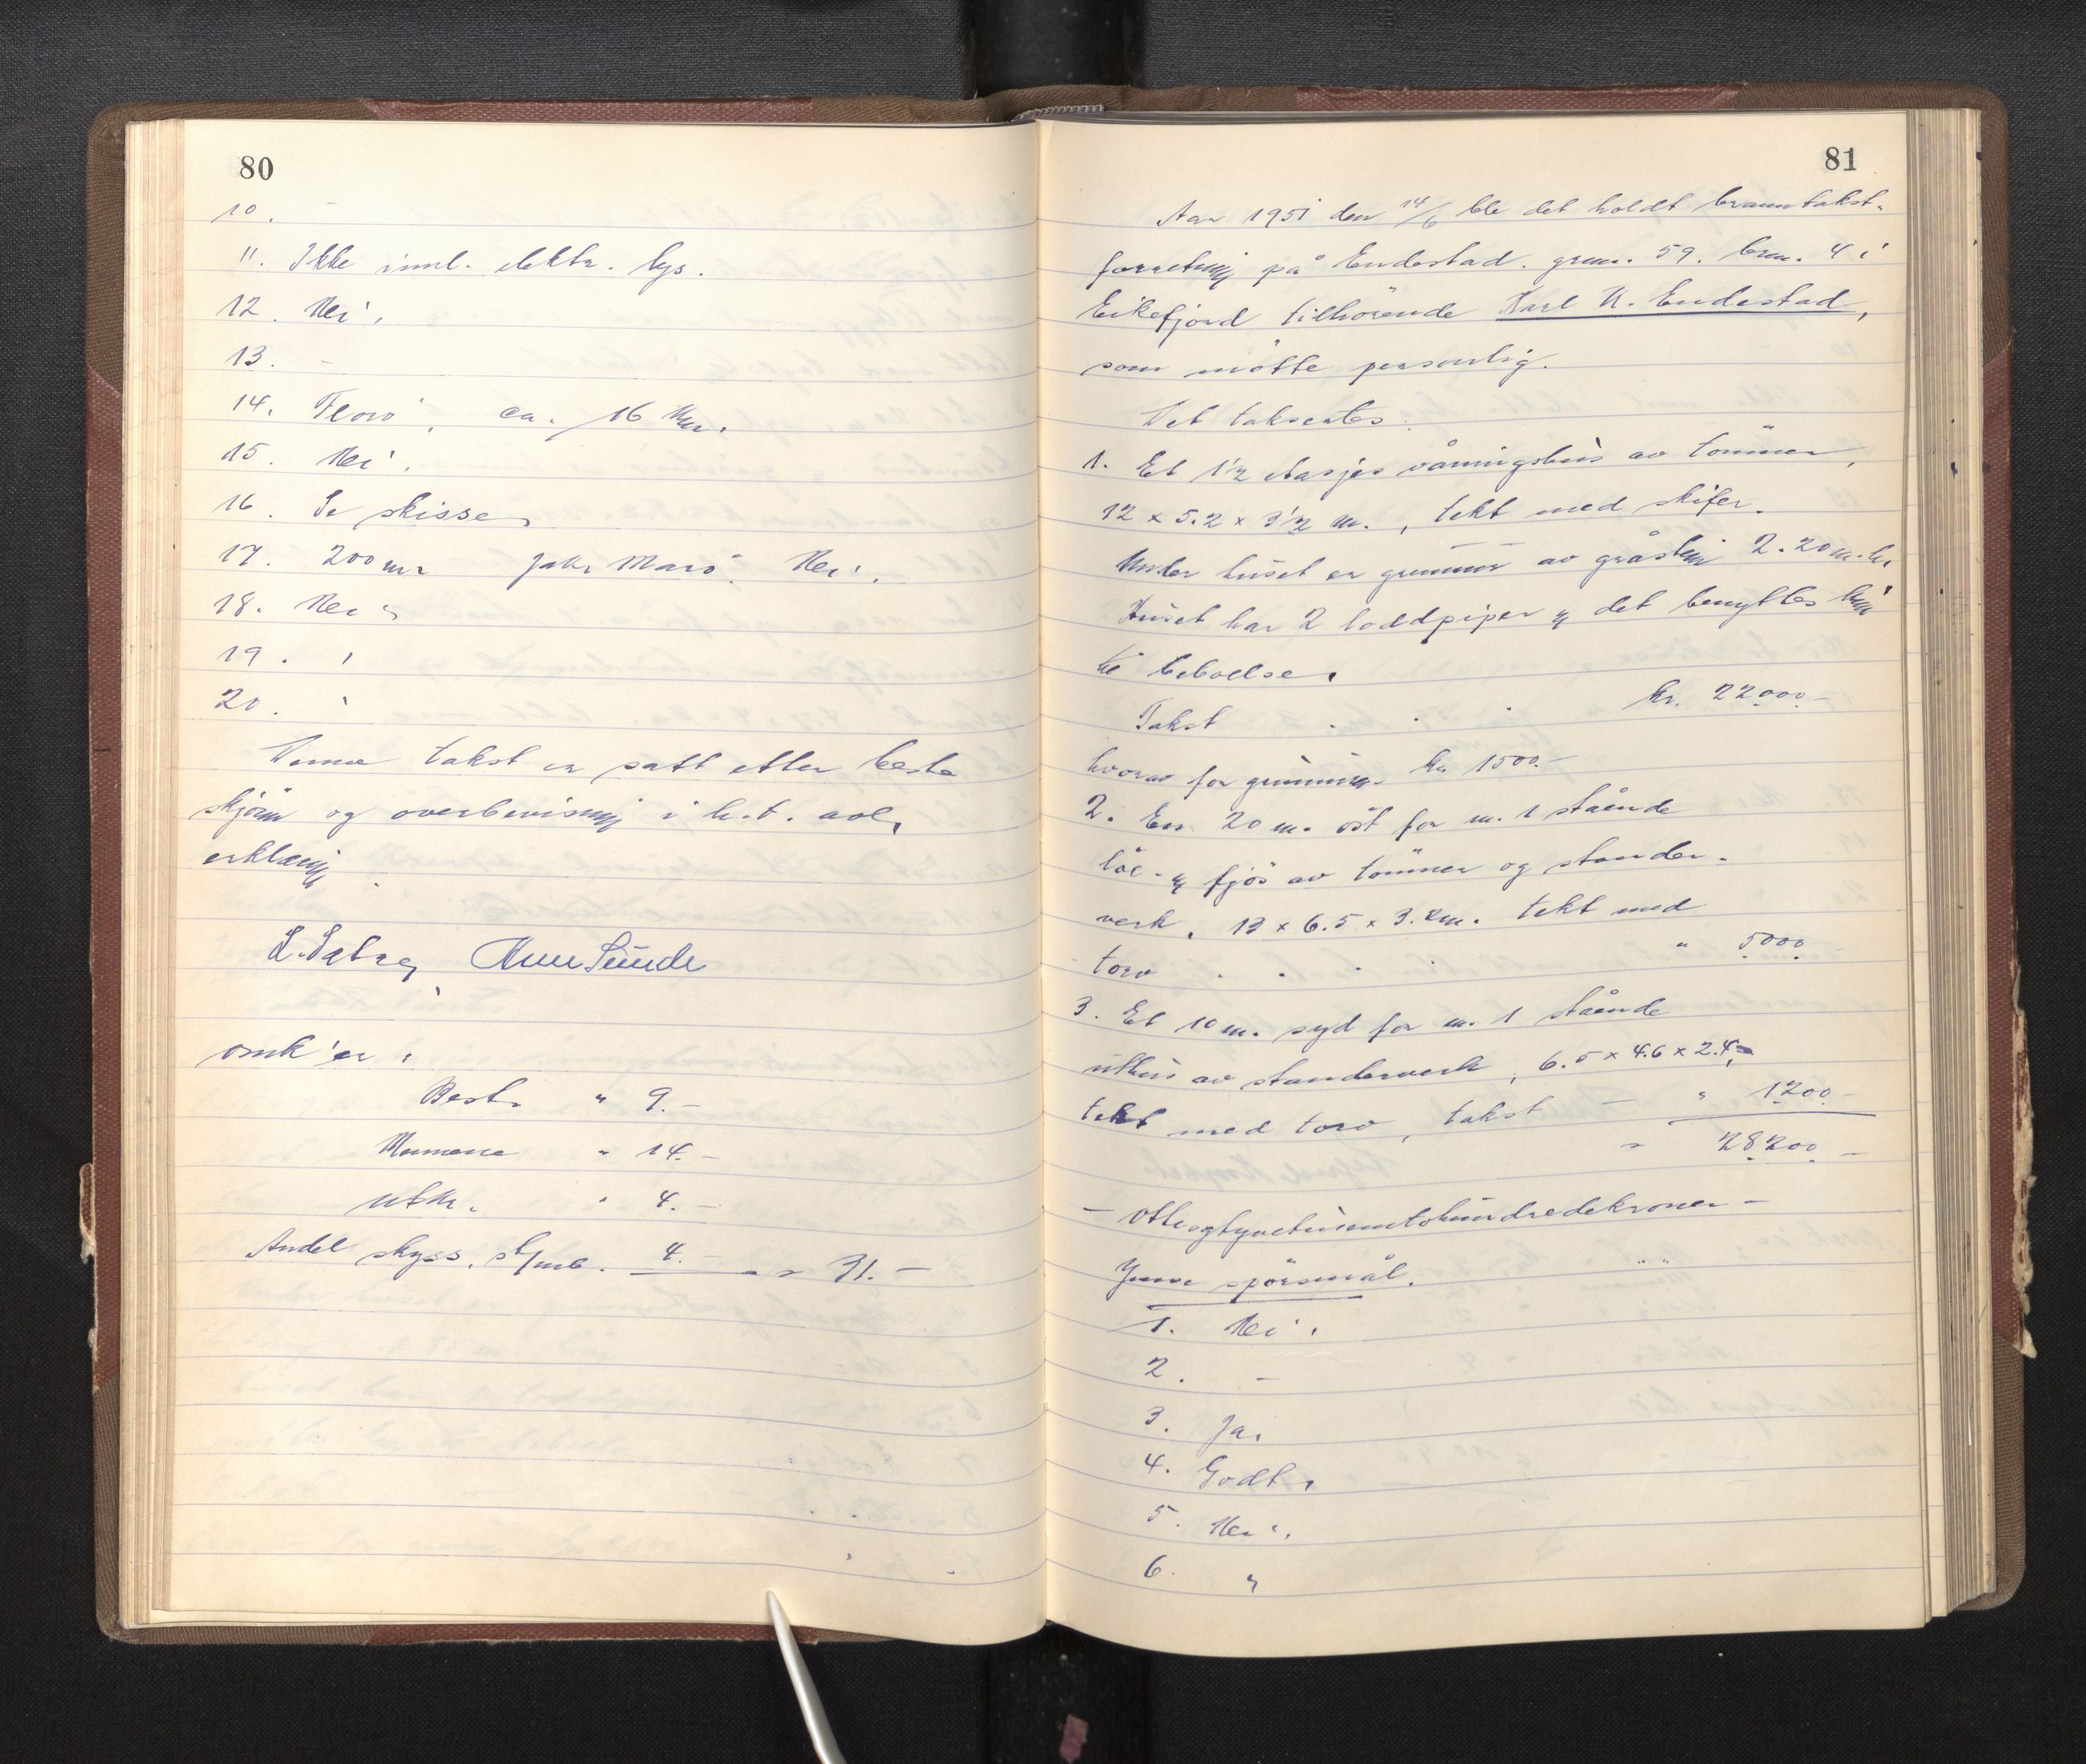 80
10. -
11. Ikke innl. elektr. lys.
12. Nei.
13. -
14. Florö, ca. 16 km.
15. Nei.
16. Se skisse.
17. 200 m Nei.
18. Nei
19. "
20. "
Denne takst er satt etter beste
skjönn og overbevisning i h.t. avl.
erklæring.
Sunde
omk'er.
Best. " 9.-
" 14.-
" 4.-
Andel skyss, 4.- " 31.-
81
Aar 1951 den 14/6 ble det holdt branntakst-
forretning på Endestad. grnr. 59. brnr. 4 i
Eikefjord tilhörende Karl N. Endestad,
som mötte personlig.
Det takseertes:
1. Et 1 1/2 etasjes våningshus av tömmer,
12 x 5.2 x 3 1/2 m., tekt med skifer.
Under huset er grunnmur av gråstein 2.20 m. h.
Huset har 2 loddpiper og det benyttes kun
til beboelse.
Takst . . . kr. 22000.-
hvorav for grunnmur kr. 1500.-
2. En 20 m. öst for nr. 1 stående
löe- og fjös av tömmer og stender-
verk, 13 x 6.5 x 3.2 m. tekt med
torv . . . . " 5000
3. Et 10 m. syd for nr. 1 stående
uthus av stenderverk, 6.5 x 4.6 x 2.4,
tekt med torv, takst - " 1200.-
" 28200.-
- Otteogtyvetusentohundredekroner -
Ymse spörsmål.
1. Nei.
2. -
3. Ja.
4. Godt.
5. Nei.
6. "